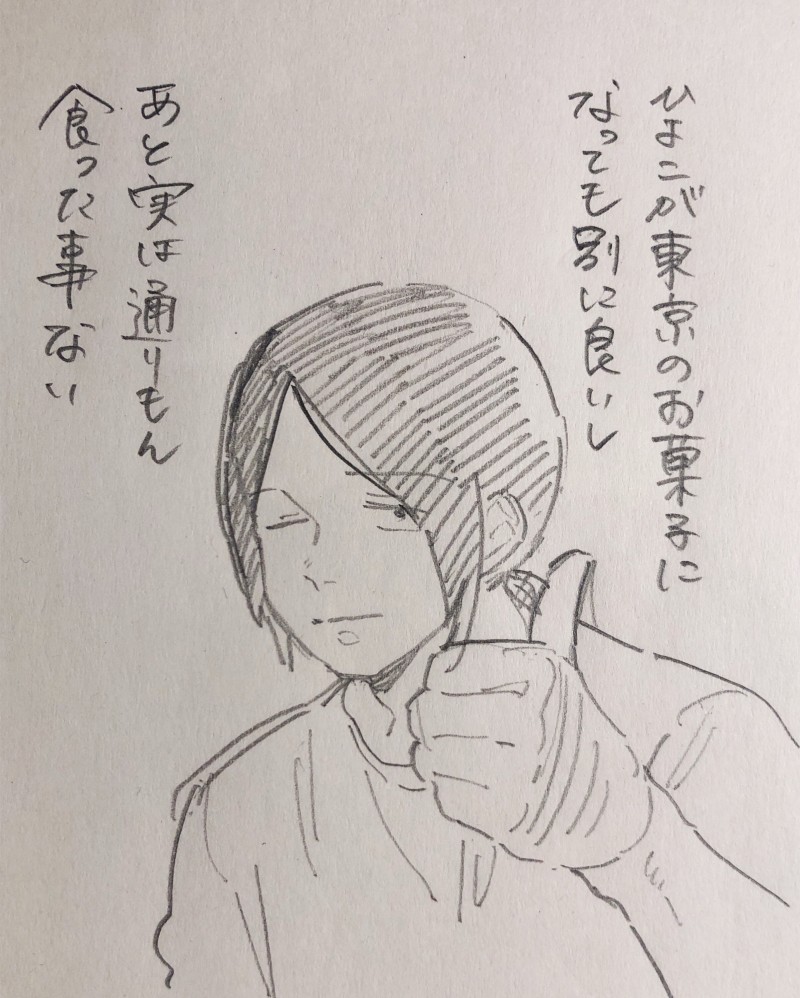 ひよこが東京のお菓子に
なっても別に良いし
あと実は通りもん
食った事ない